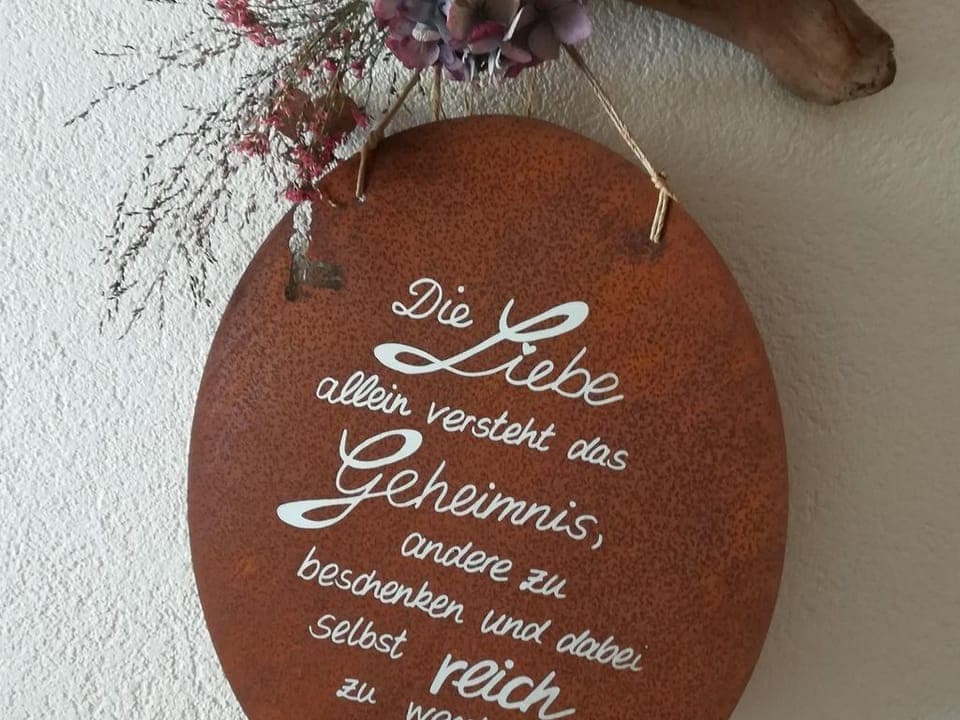 Die Liebe
allein versteht das
Geheimnis,
andere zu
beschenken und dabei
selbst reich
zu